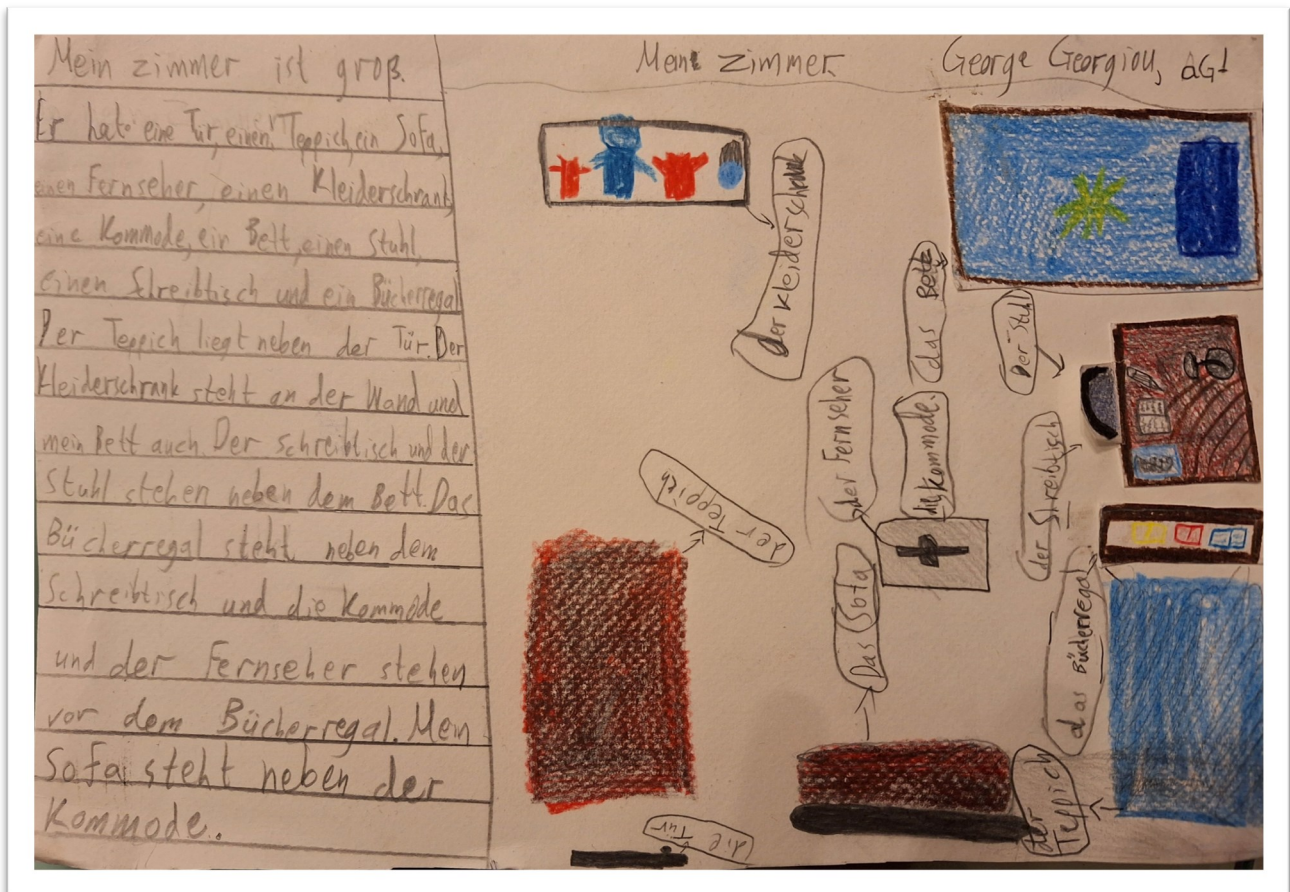 Mein zimmer ist groß.
Er hat eine Tür, einen Teppich, ein Sofa,
einen Fernseher, einen Kleiderschrank,
eine Kommode, ein Bett, einen Stuhl,
einen Shreibtisch und ein Bücherregal
Der Teppich liegt neben der Tür. Der
Kleiderschrank steht an der Wand und
mein Bett auch. Der Schreibtisch und der
Stuhl stehen neben dem Bett. Das
Bücherregal steht neben dem
Schreibtisch und die Kommode
und der Fernseher stehen
vor dem Bücherregal. Mein
Sofa steht neben der
Kommode.
Mein zimmer
George Georgiou,
der Kleiderschrank
das Bett
Der Stuhl
der Fernseher
die Kommode.
der Shreibtisch
der Teppich
Das Sofa
das Bücherregal
der
Teppich
die Tür